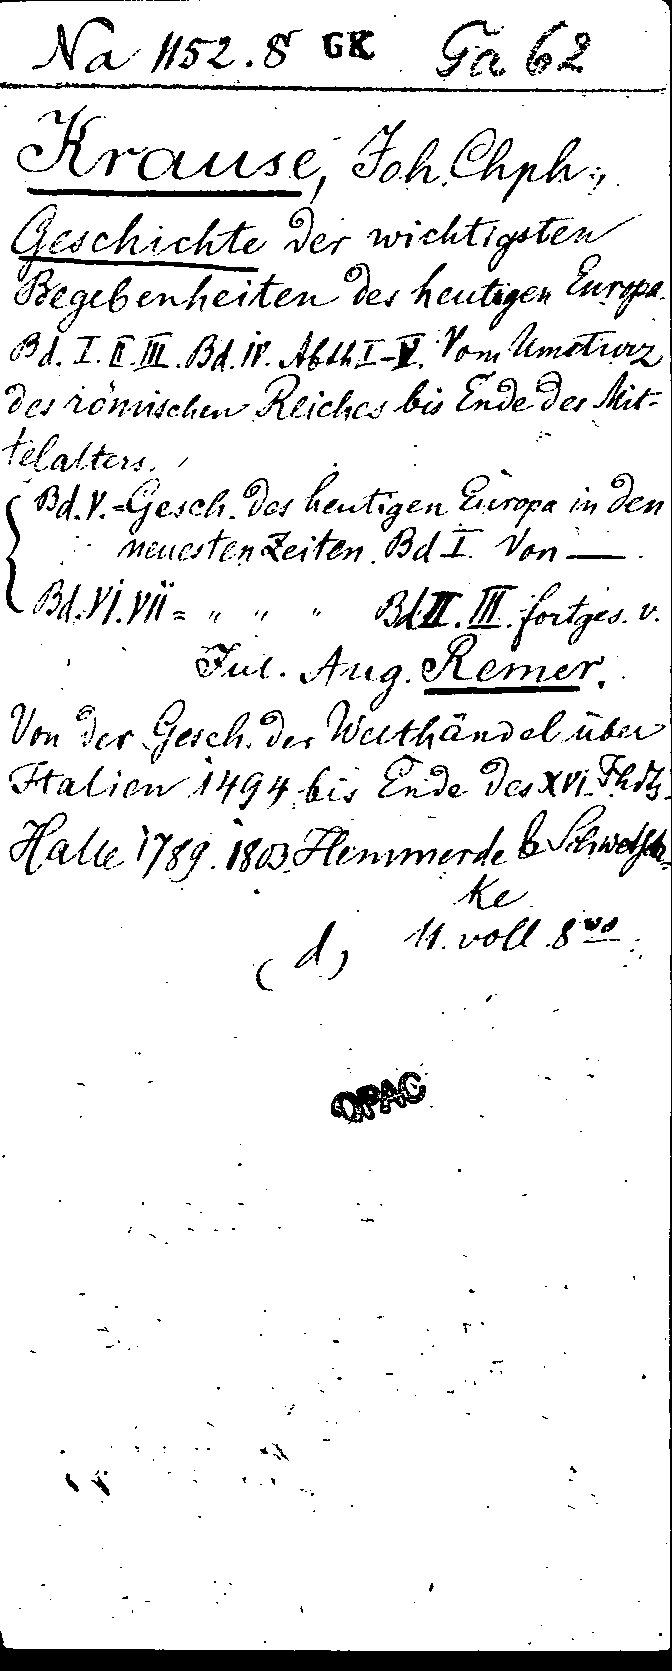 Na 1152.8 GK Ga 62
Krause, Joh. Chph.,
Geschichte der wichtigsten
Begebenheiten des heutigen Europa.
Bd. I. II. III. Bd. IV. Abth I-V. Vom Umsturz
des römischen Reiches bis Ende des Mit=
telalters.
Bd. V. = Gesch. des heutigen Europa in den
neuesten Zeiten. Bd I. Von —.
Bd. VI. VII = " " " Bd II. III. fortges. v.
Jul. Aug. Remer.
Von der Gesch. der Welthändel über
Italien 1494 bis Ende des XVI. Jhdts.
Halle 1789. 1803. Hemmerde & Schwetsch=
ke
(d) 11. voll. 8vo
OPAC